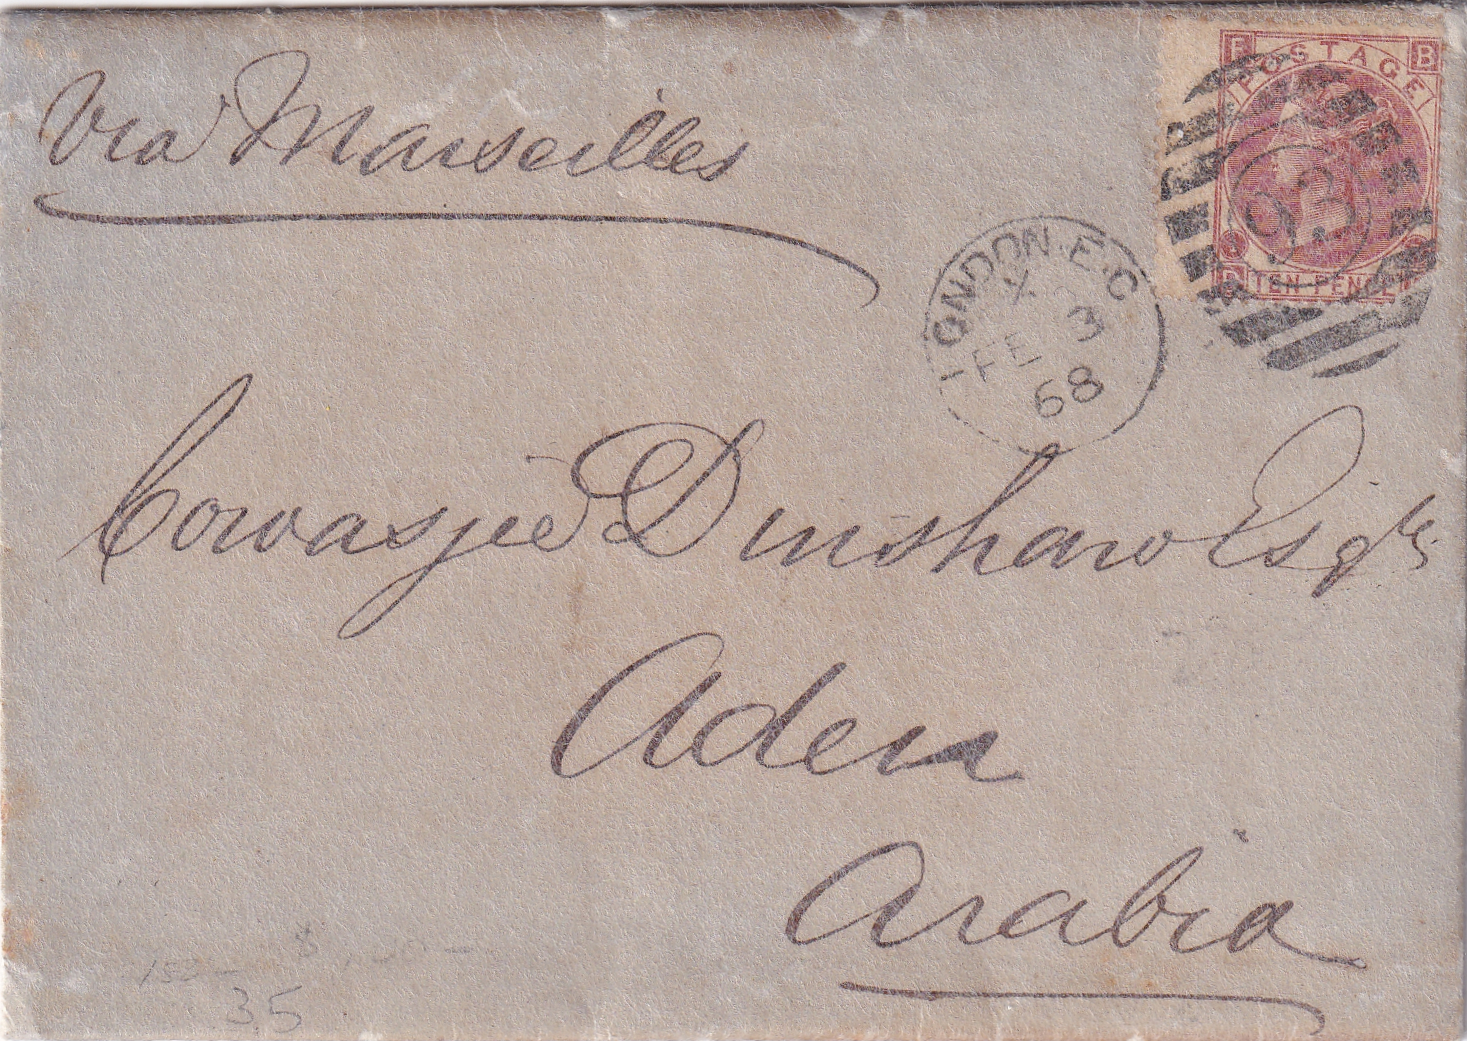 Via Marseilles
F POSTAGE B
93
TEN PENCE
LONDON.E.C
X
FE 3
68
Cowasjee Dinshaw Esqre
Aden
Arabia
35